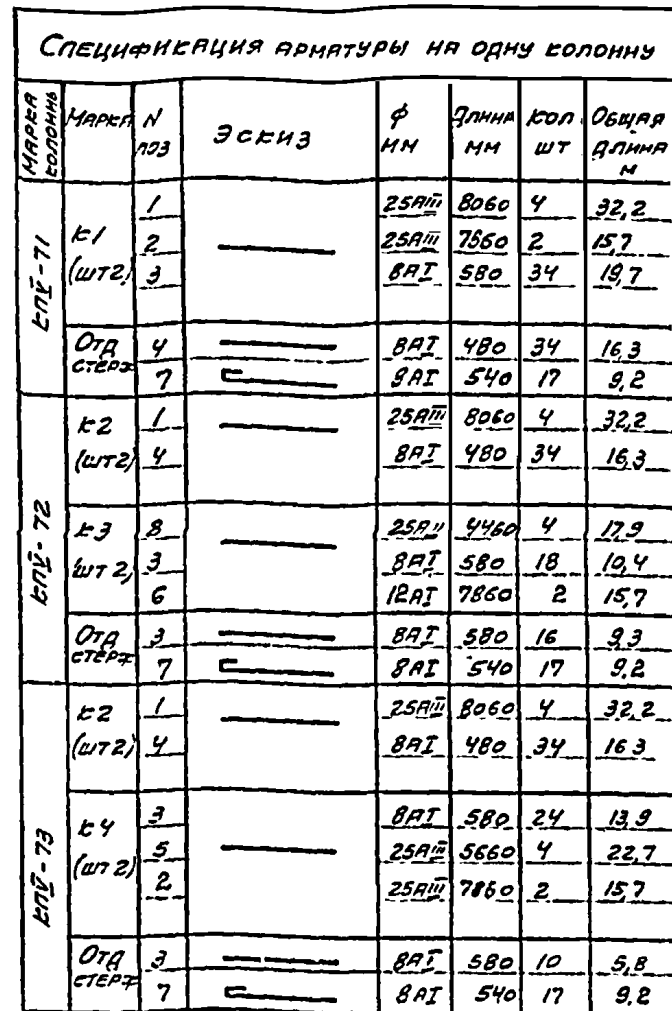 Спецификация арматуры на одну колонну
Марка колонны | Марка | N поз | Эскиз | ф мм | Длина мм | Кол шт | Общая длина м
КПV-71
К1 (шт2) | 1 | 25АIII | 8060 | 4 | 32,2
2 | 25АIII | 7860 | 2 | 15,7
3 | 8АI | 580 | 34 | 19,7
Отд стерж | 4 | 8АI | 480 | 34 | 16,3
7 | 8АI | 540 | 17 | 9,2
КПV-72
К2 (шт2) | 1 | 25АIII | 8060 | 4 | 32,2
4 | 8АI | 480 | 34 | 16,3
К3 шт 2) | 8 | 25АII | 4460 | 4 | 17,9
3 | 8АI | 580 | 18 | 10,4
6 | 12АI | 7860 | 2 | 15,7
Отд стерж | 3 | 8АI | 580 | 16 | 9,3
7 | 8АI | 540 | 17 | 9,2
КПV-73
К2 (шт2) | 1 | 25АIII | 8060 | 4 | 32,2
4 | 8АI | 480 | 34 | 16,3
К4 (шт2) | 3 | 8АI | 580 | 24 | 13,9
5 | 25АIII | 5660 | 4 | 22,7
2 | 25АIII | 7860 | 2 | 15,7
Отд стерж | 3 | 8АI | 580 | 10 | 5,8
7 | 8АI | 540 | 17 | 9,2